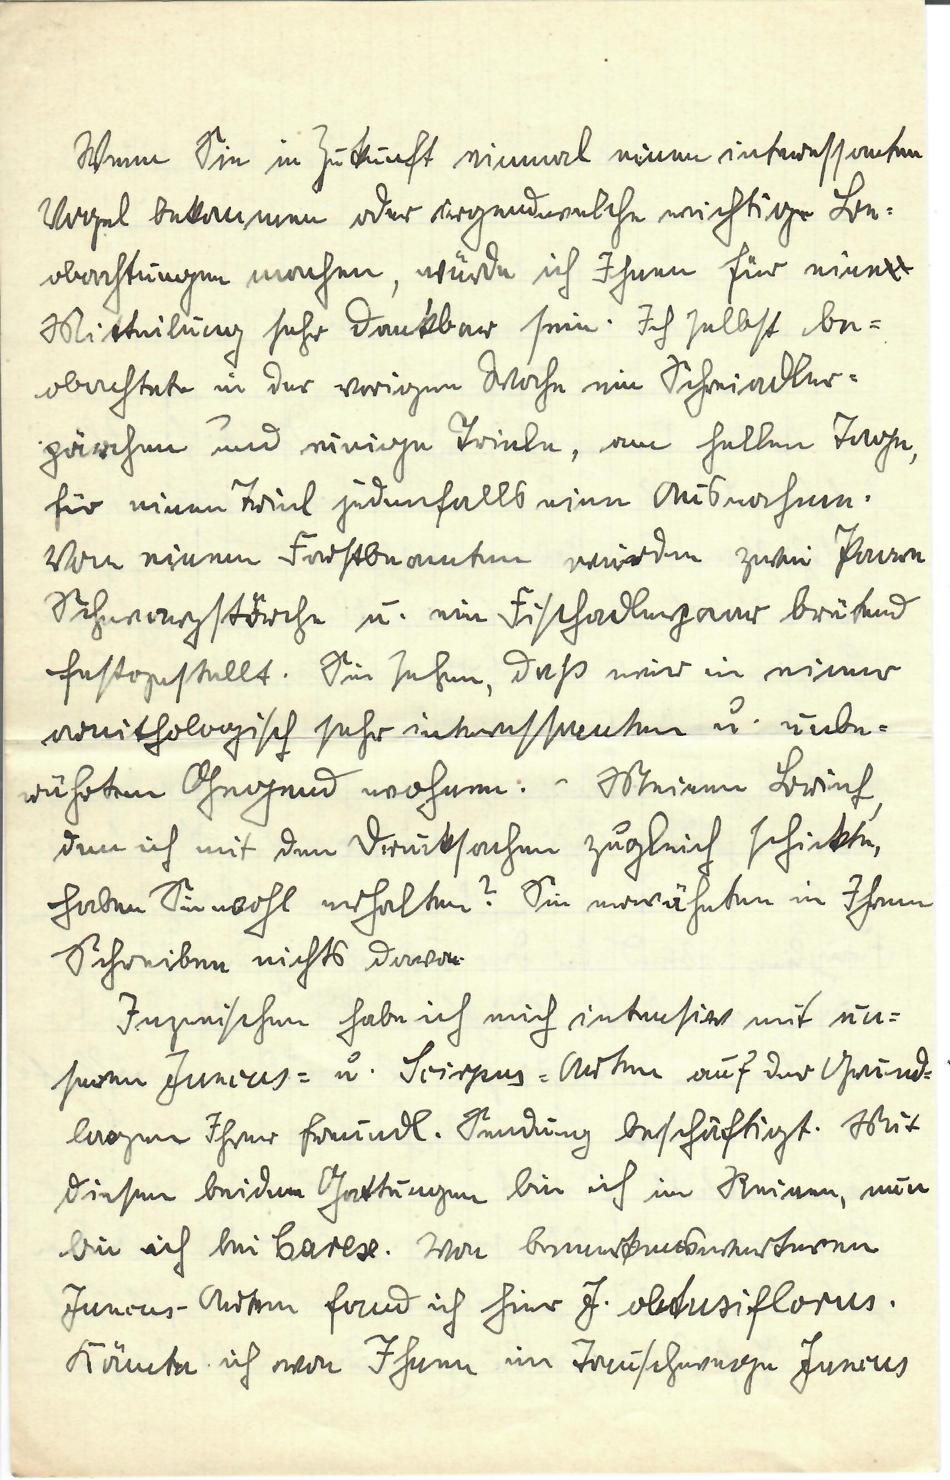 Wenn Sie in Zukunft einmal einen interessanten
Vogel bekommen oder irgendwelche wichtige Be=
obachtungen machen, würde ich Ihnen für eine
Mitteilung sehr dankbar sein. Ich selbst be=
obachtete in der vorigen Woche ein Schreiadler=
pärchen und einige Triele, am hellen Tage,
für einen Triel jedenfalls eine Ausnahme.
Von einem Forstbeamten wurden zwei Paare
Schwarzstörche u. ein Fischadlerpaar brütend
festgestellt. Sie sehen, daß wir in einer
ornithologisch sehr interessanten u. unbe=
rührten Gegend wohnen. - Meinen Brief,
den ich mit den Drucksachen zugleich schickte,
haben Sie wohl erhalten? Sie erwähnten in Ihrem
Schreiben nichts davon.
Inzwischen habe ich mich intensiv mit un=
seren Juncus= u. Scirpus=Arten auf der Grund=
lagen Ihrer freundl. Sendung beschäftigt. Mit
diesen beiden Gattungen bin ich im Reinen, nun
bin ich bei Carex. Von bemerkenswerteren
Juncus-Arten fand ich hier J. obtusiflorus.
Könnte ich von Ihnen im Tauschwege Juncus